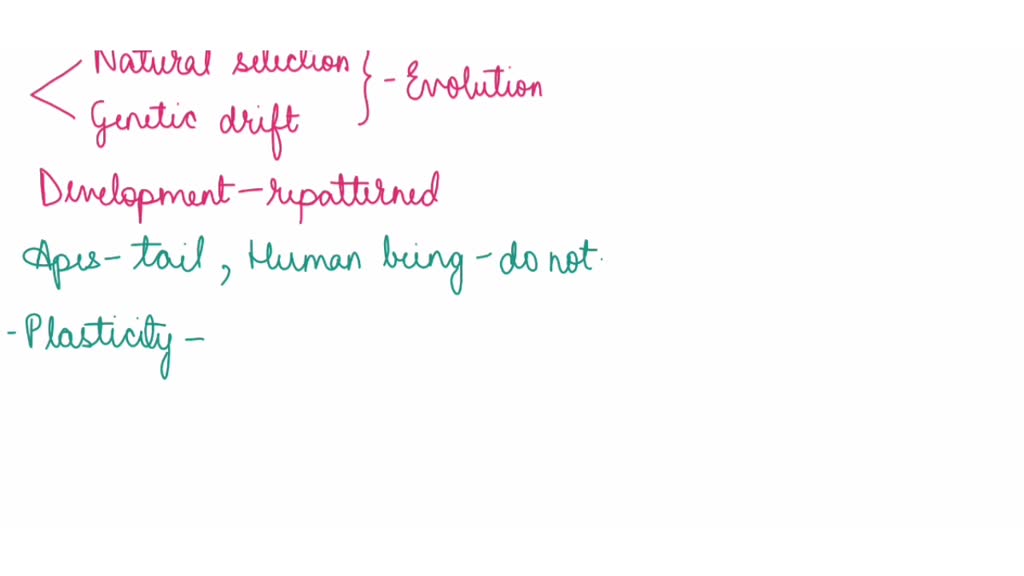 Natural selection } - Evolution
Genetic drift
Development - repatterned
Apes - tail, Human being - do not.
- Plasticity -